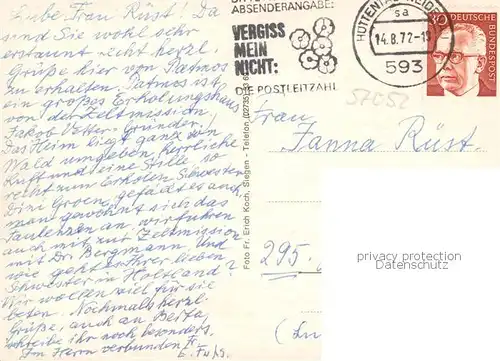 Liebe Frau Rüst! Da
sind Sie wohl sehr
erstaunt recht herzl.
Grüße hier von Patmos
zu erhalten. Patmos ist
ein großes Erholungshaus
von der Zeltmission,
Jakob Vetter Gründer.
Das Heim liegt ganz von
Wald umgeben, herrliche
Luft und eine Stille, so
recht zum erholen. Schwester
Dini Groene gefällt es auch,
man gewöhnt sich das
Faulenzen an, wir fuhren
auch mit zur Zeltmission
mit Dr. Bergmann. Und
wie geht es Ihrer lieben
Schwester in Holtland?
Wir wollen viel für sie
beten. Nochmals herzl.
Grüße, auch an Berta,
schreibe ihr noch besonders.
Im Herrn verbunden
ABSENDERANGABE:
VERGISS
MEIN
NICHT:
DIE POSTLEITZAHL
HÜTTENTAL-WEIDEN
sa
14.8.72-18
593
30
DEUTSCHE
BUNDESPOST
57052
Frau
Fanna Rüst
295
Foto Fr. Erich Koch, Siegen - Telefon (02735)
privacy protection
Datenschutz